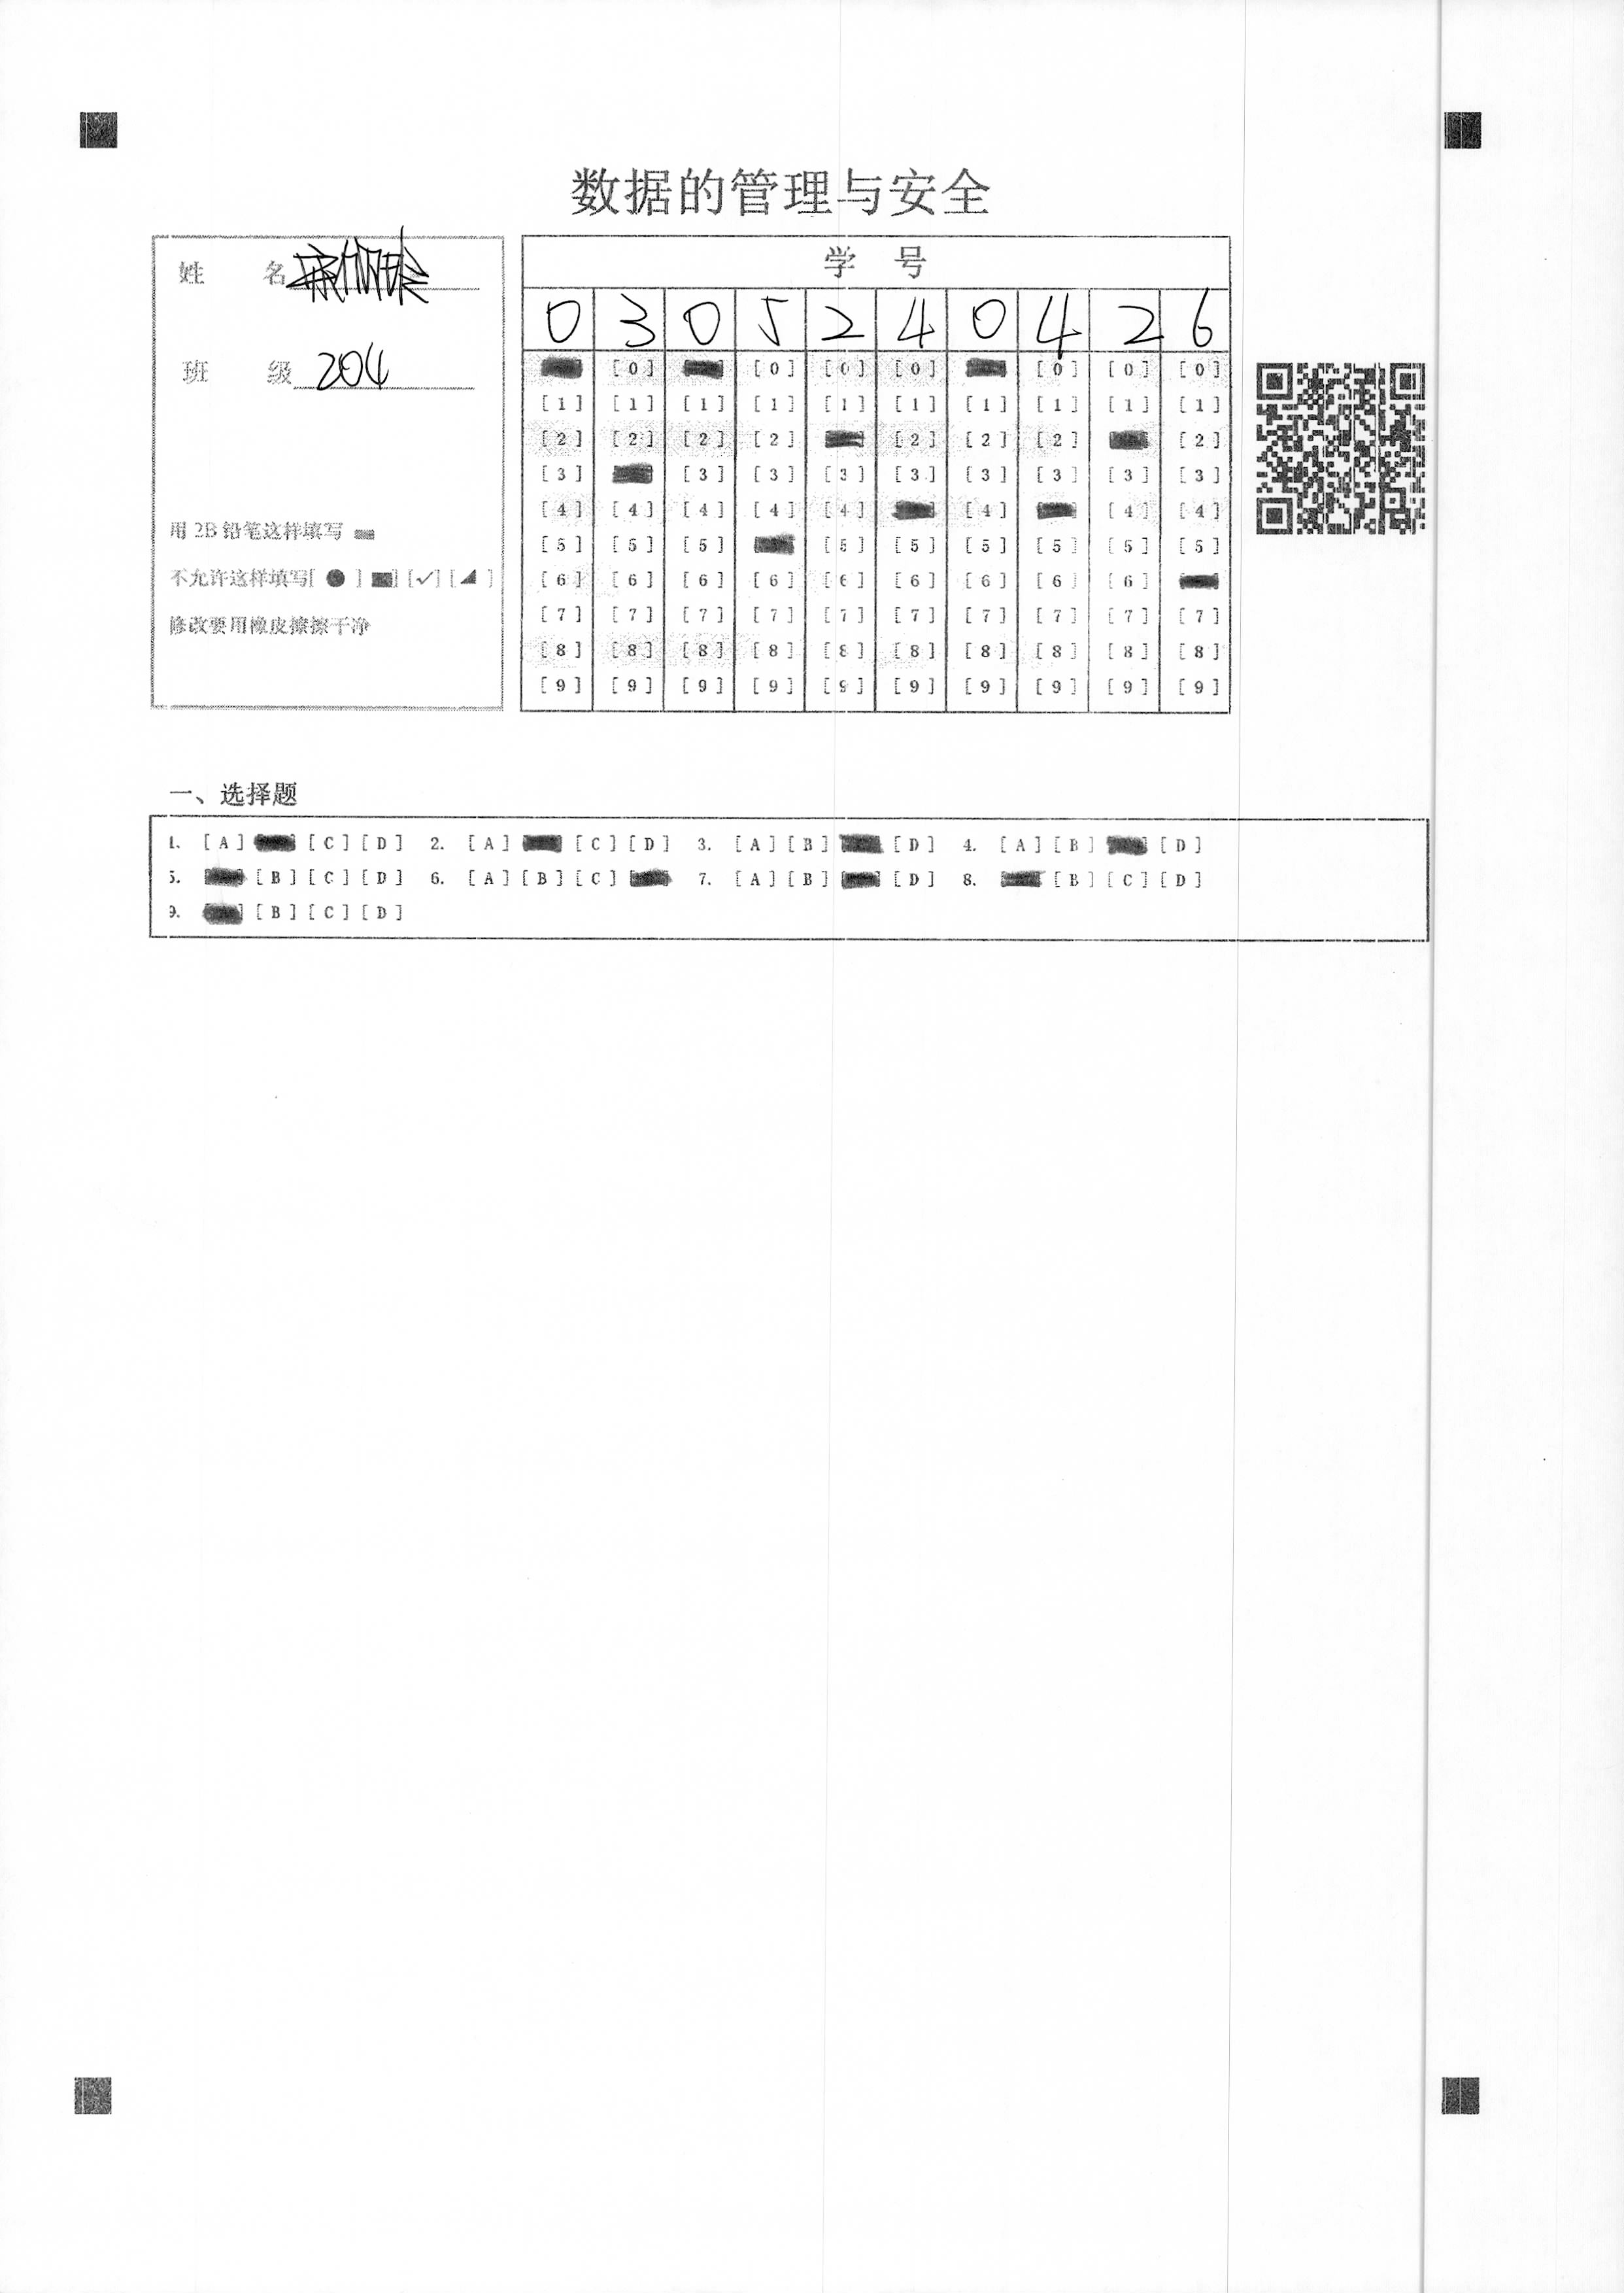 数据的管理与安全
姓 名
班 级 204
用 2B 铅笔这样填写
不允许这样填写[ ● ] [■] [✓] [◢ ]
修改要用橡皮擦擦干净
学 号
0 3 0 5 2 4 0 4 2 6
[0] [0] [0] [0] [0] [0] [0]
[1] [1] [1] [1] [1] [1] [1] [1] [1] [1]
[2] [2] [2] [2] [2] [2] [2] [2]
[3] [3] [3] [3] [3] [3] [3] [3] [3]
[4] [4] [4] [4] [4] [4] [4] [4]
[5] [5] [5] [5] [5] [5] [5] [5] [5]
[6] [6] [6] [6] [6] [6] [6] [6] [6]
[7] [7] [7] [7] [7] [7] [7] [7] [7] [7]
[8] [8] [8] [8] [8] [8] [8] [8] [8] [8]
[9] [9] [9] [9] [9] [9] [9] [9] [9] [9]
一、选择题
1. [A] [C] [D] 2. [A] [C] [D] 3. [A] [B] [D] 4. [A] [B] [D]
5. [B] [C] [D] 6. [A] [B] [C] 7. [A] [B] [D] 8. [B] [C] [D]
9. [B] [C] [D]